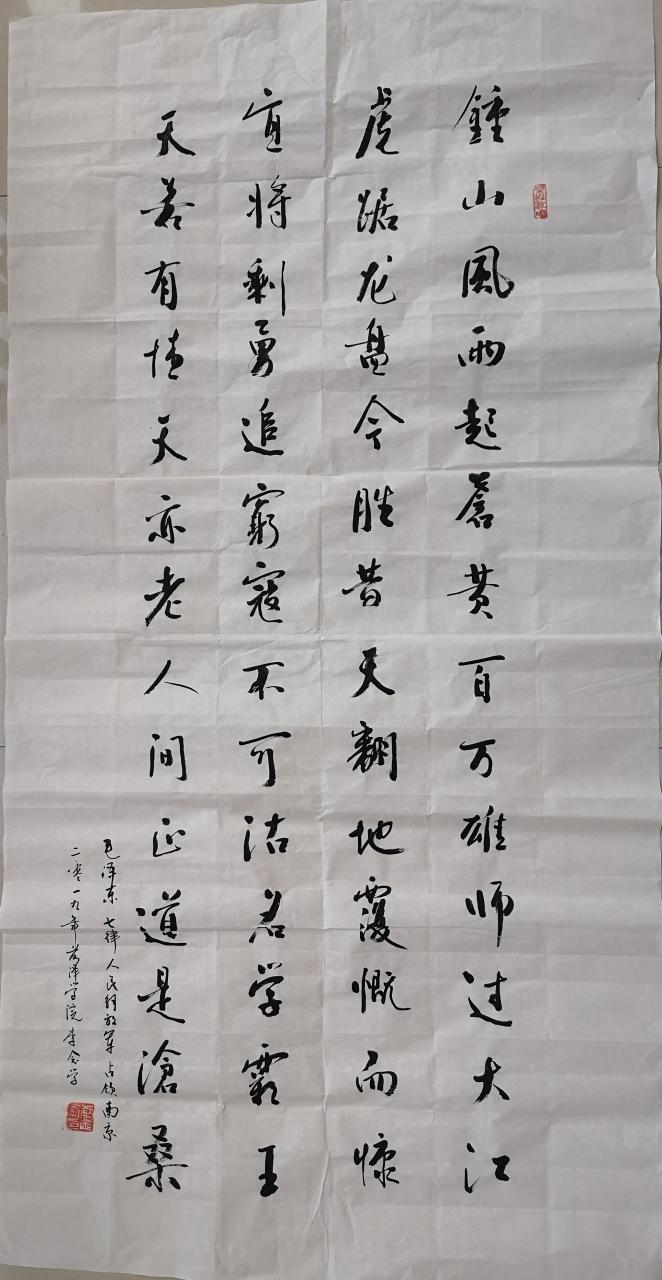 鍾山風雨起蒼黄百万雄师过大江
虎踞龙盘今胜昔天翻地覆慨而慷
宜将剩勇追窮寇不可沽名学霸王
天若有情天亦老人间正道是滄桑
毛泽东七律人民解放军占领南京
二零一九年菏泽学院李会学